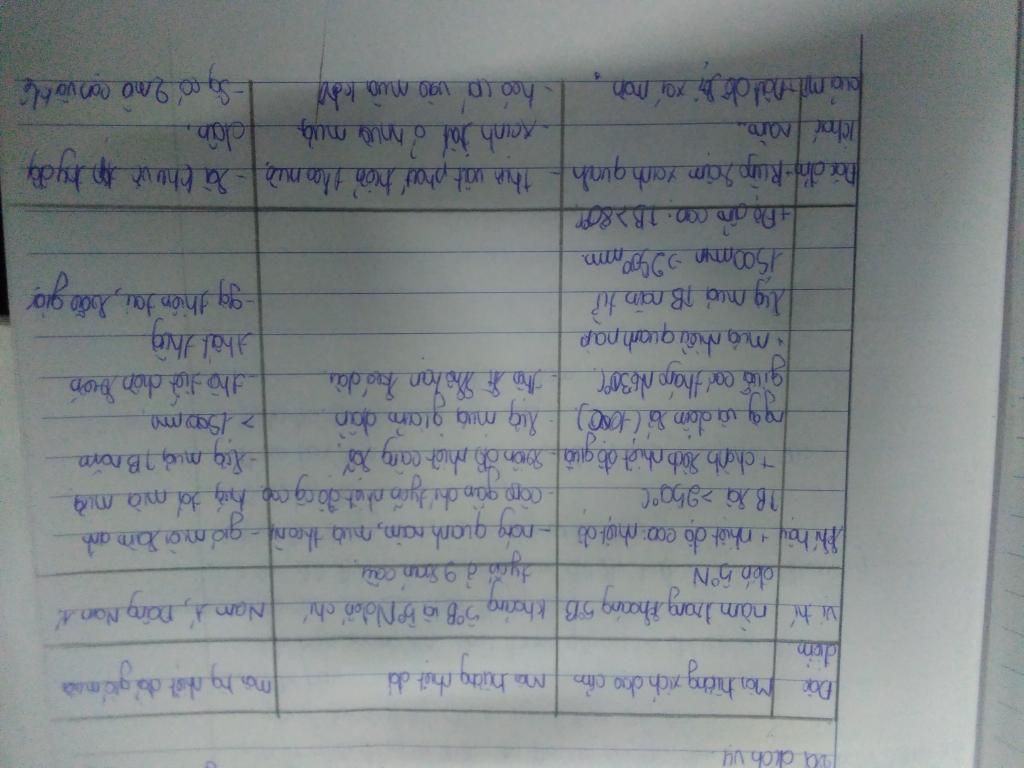 và dịch vụ
Đặc
điểm
Môi trường xích đạo ẩm
Môi trường nhiệt đới
môi trg nhiệt đới gió mùa
Vị trí
nằm trong khoảng 5°B
đến 5°N
khoảng 5°B và 5°N đến chí
tuyến ở 2 bán cầu
Nam Á, Đông Nam Á
khí hậu
+ nhiệt độ cao: nhiệt độ
TB là >250°C
+ chênh lệch nhiệt độ giữa
ngày và đêm là (100C)
+ mưa nhiều quanh năm
lượng mưa TB năm từ
1500mm -> 2500mm
+ Độ ẩm cao: TB >80%
- nóng quanh năm, mưa theo mùa
- càng gần chí tuyến nhiệt độ càng cao
- biên độ nhiệt càng lớn
- lượng mưa giảm dần
- thời kì khô hạn kéo dài
- gió mùa làm ảnh
hưởng tới mùa mưa
- lượng mưa TB năm
> 1500mm
- thời tiết diễn biến
thất thường
- gây thiên tai, bão gió
Đặc điểm
khác
- Rừng rậm xanh quanh
năm
- đất dễ bị xói mòn
- thực vật phát triển theo mùa
- xanh tốt ở mùa mưa
- héo úa vào mùa khô
- là khu vực tập trung đông
dân